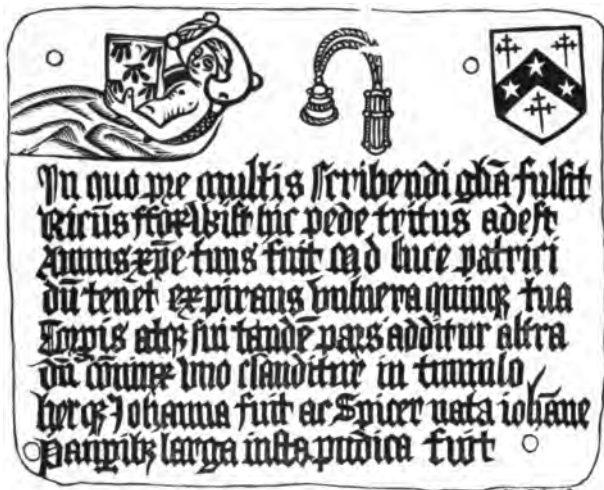 In quo pre multis scribendi glīa fulsit
Ricūs ffoxwist hic pede tritus adest
Annus xp̄e tuus fuit M d luce patrici
dū tenet expirans vulnera quinqꝫ tua
Corpis atqꝫ sui tandē pars additur altra
dū cōniux vno clauditur in tumulo
hecqꝫ Johanna fuit ac Spicer nata iohāne
Paupibꝫ larga iusta pudica fuit